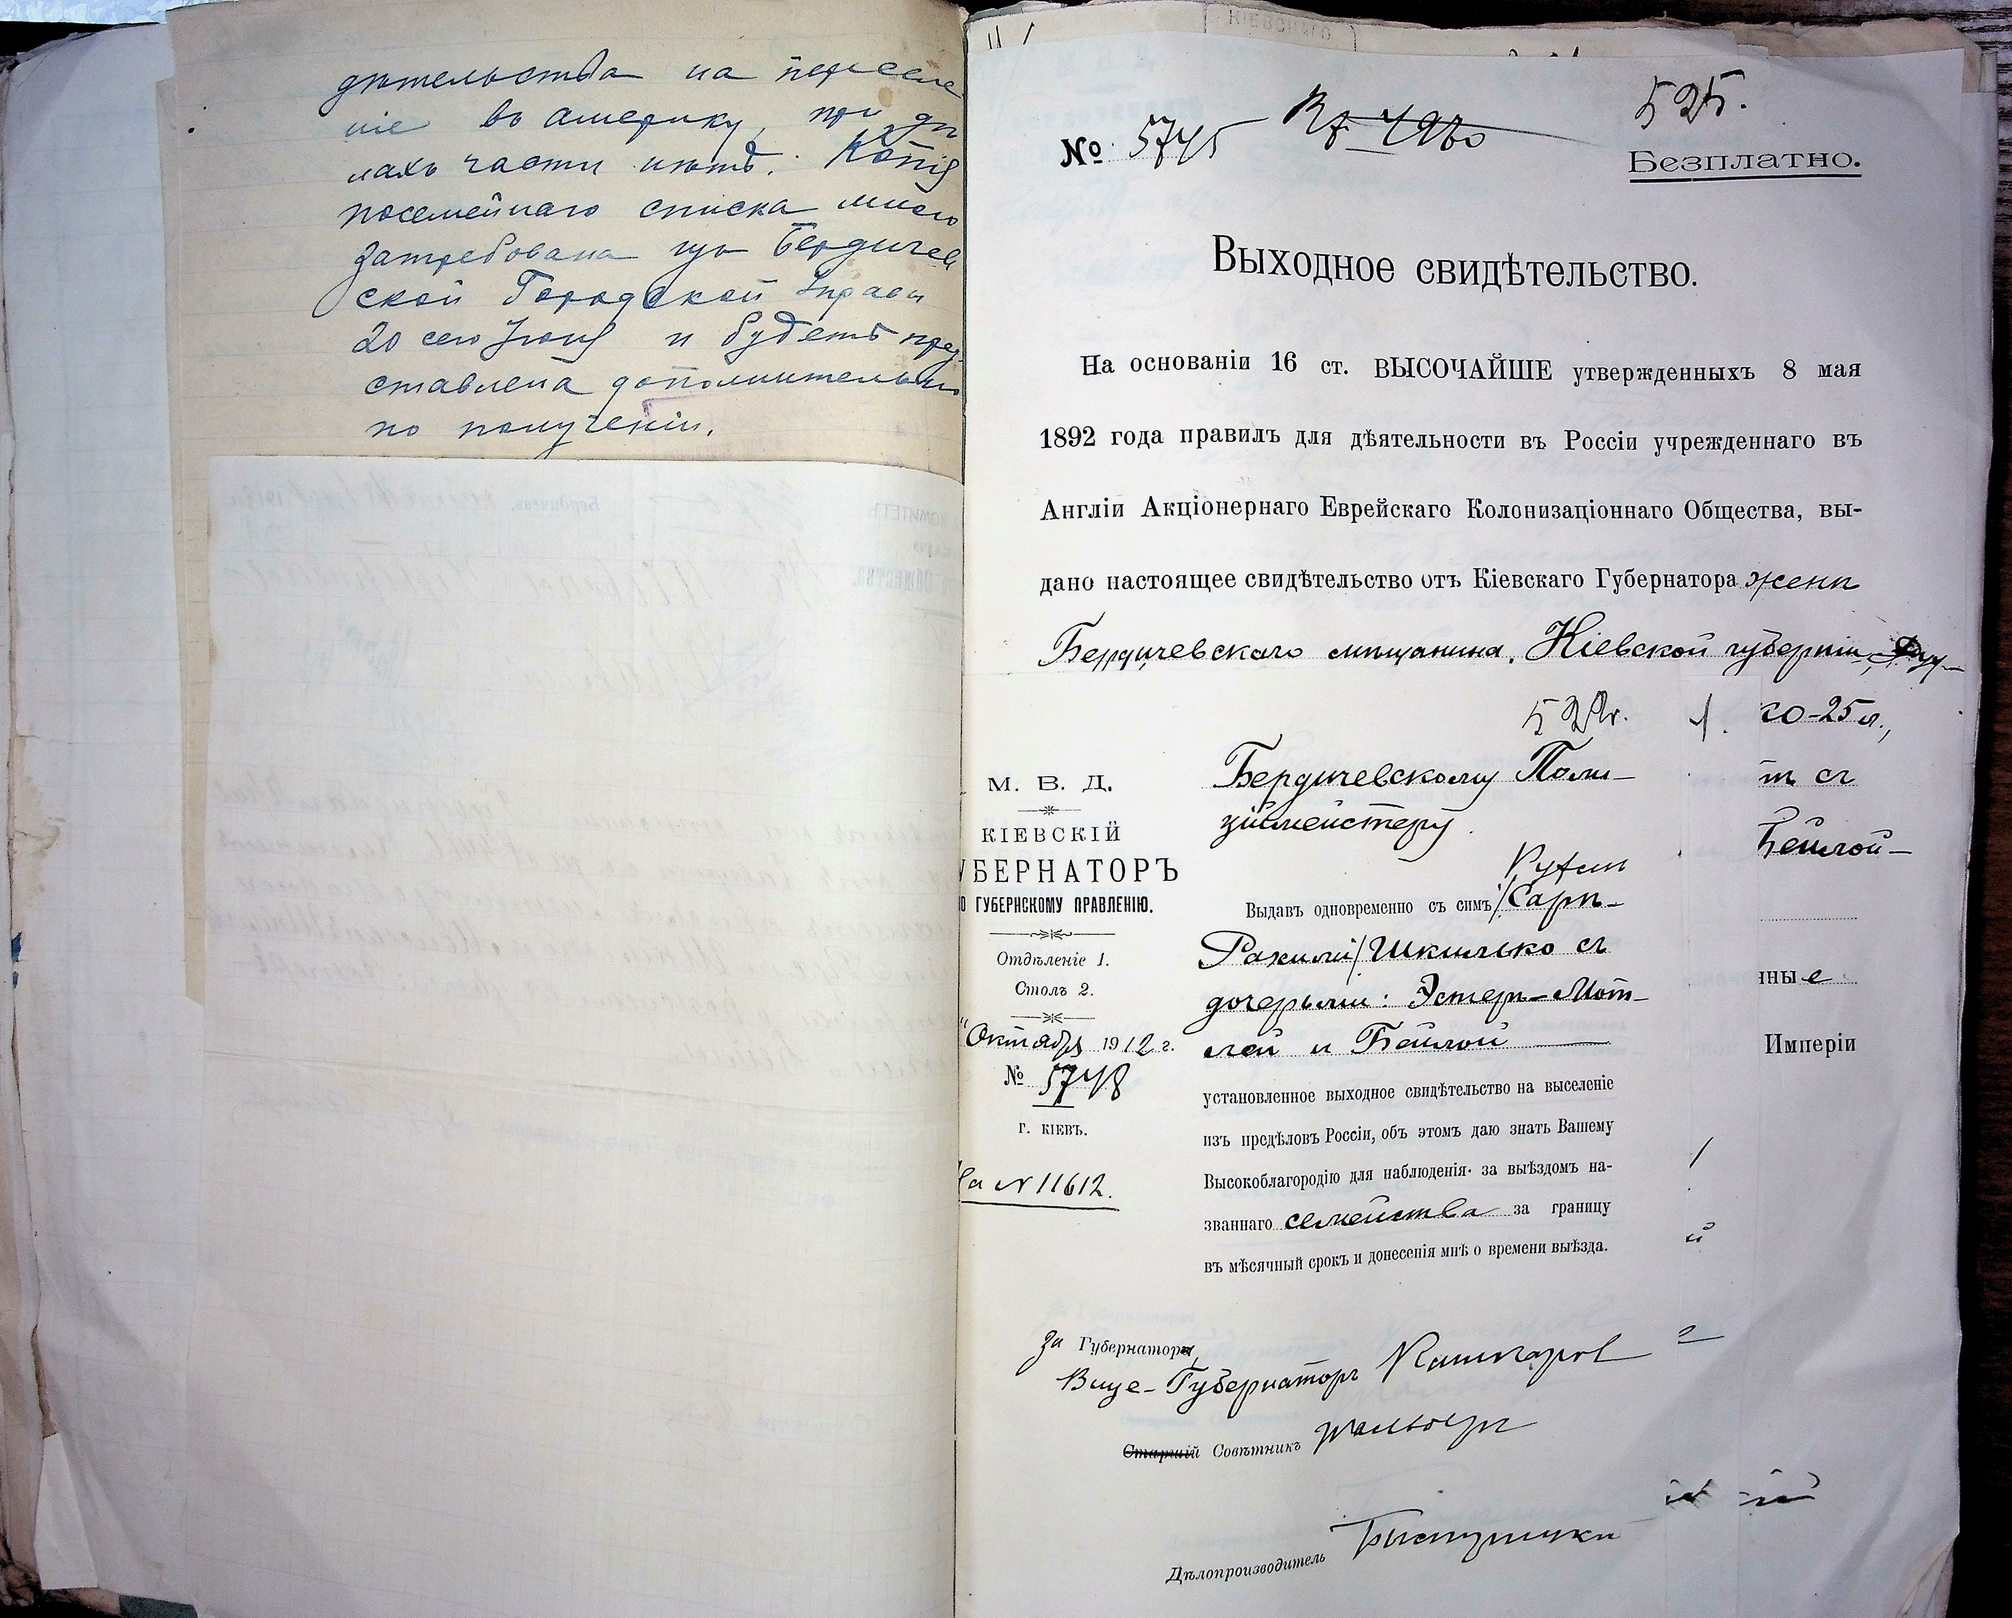 дѣтельства на переселе
ніе въ америку, при дѣ
лахъ части имѣт. Копія
посемейнаго списка мною
затребована изъ Бердичев
ской Городской Управы
20 сего Іюня и будетъ пред
ставлена дополнительно
по полученіи.
525.
№ 5745
Безплатно.
Выходное свидѣтельство.
На основаніи 16 ст. ВЫСОЧАЙШЕ утвержденныхъ 8 мая
1892 года правилъ для дѣятельности въ Россіи учрежденнаго въ
Англіи Акціонернаго Еврейскаго Колонизаціоннаго Общества, вы-
дано настоящее свидѣтельство отъ Кіевскаго Губернатора женѣ
Бердичевскаго мѣщанина, Кіевской губерніи,
ко-25 л.,
ъ съ
Бейлой-
нные
Имперіи
522.
М. В. Д.
КІЕВСКІЙ
УБЕРНАТОРЪ
О ГУБЕРНСКОМУ ПРАВЛЕНІЮ.
Отдѣленіе 1.
Столъ 2.
" Октября 1912 г.
№ 5748
г. КІЕВЪ.
На № 11612.
Бердичевскому Поли-
ціймейстеру.
Выдавъ одновременно съ симъ Рухлѣ /Сарѣ-
Рахили/ Шкилько съ
дочерьми: Эстеръ-Мот-
лей и Бейлой
установленное выходное свидѣтельство на выселеніе
изъ предѣловъ Россіи, объ этомъ даю знать Вашему
Высокоблагородію для наблюденія за выѣздомъ на-
званнаго семейства за границу
въ мѣсячный срокъ и донесенія мнѣ о времени выѣзда.
За Губернатора,
Вице-Губернаторъ Кашкаров
Старшій Совѣтникъ
Дѣлопроизводитель